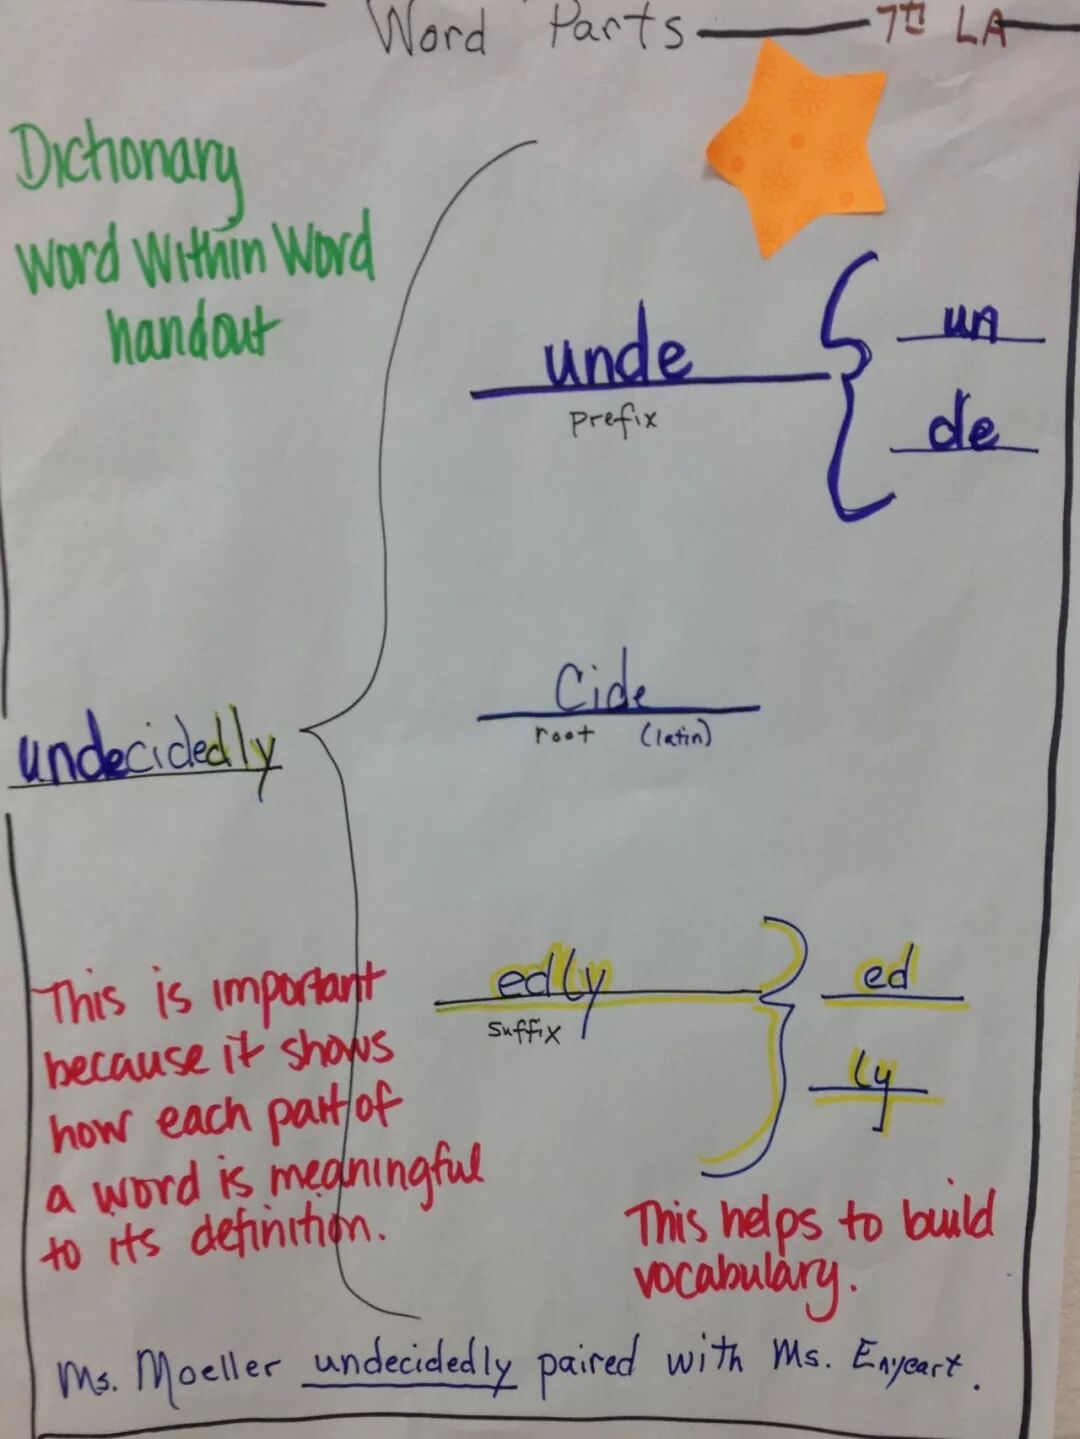 Word Parts 7th LA
Dictionary
Word Within Word
handout
unde
prefix
un
de
undecidedly
Cide
root (latin)
edly
suffix
ed
ly
This is important
because it shows
how each part of
a word is meaningful
to its definition.
This helps to build
vocabulary.
Ms. Moeller undecidedly paired with Ms. Enyeart.